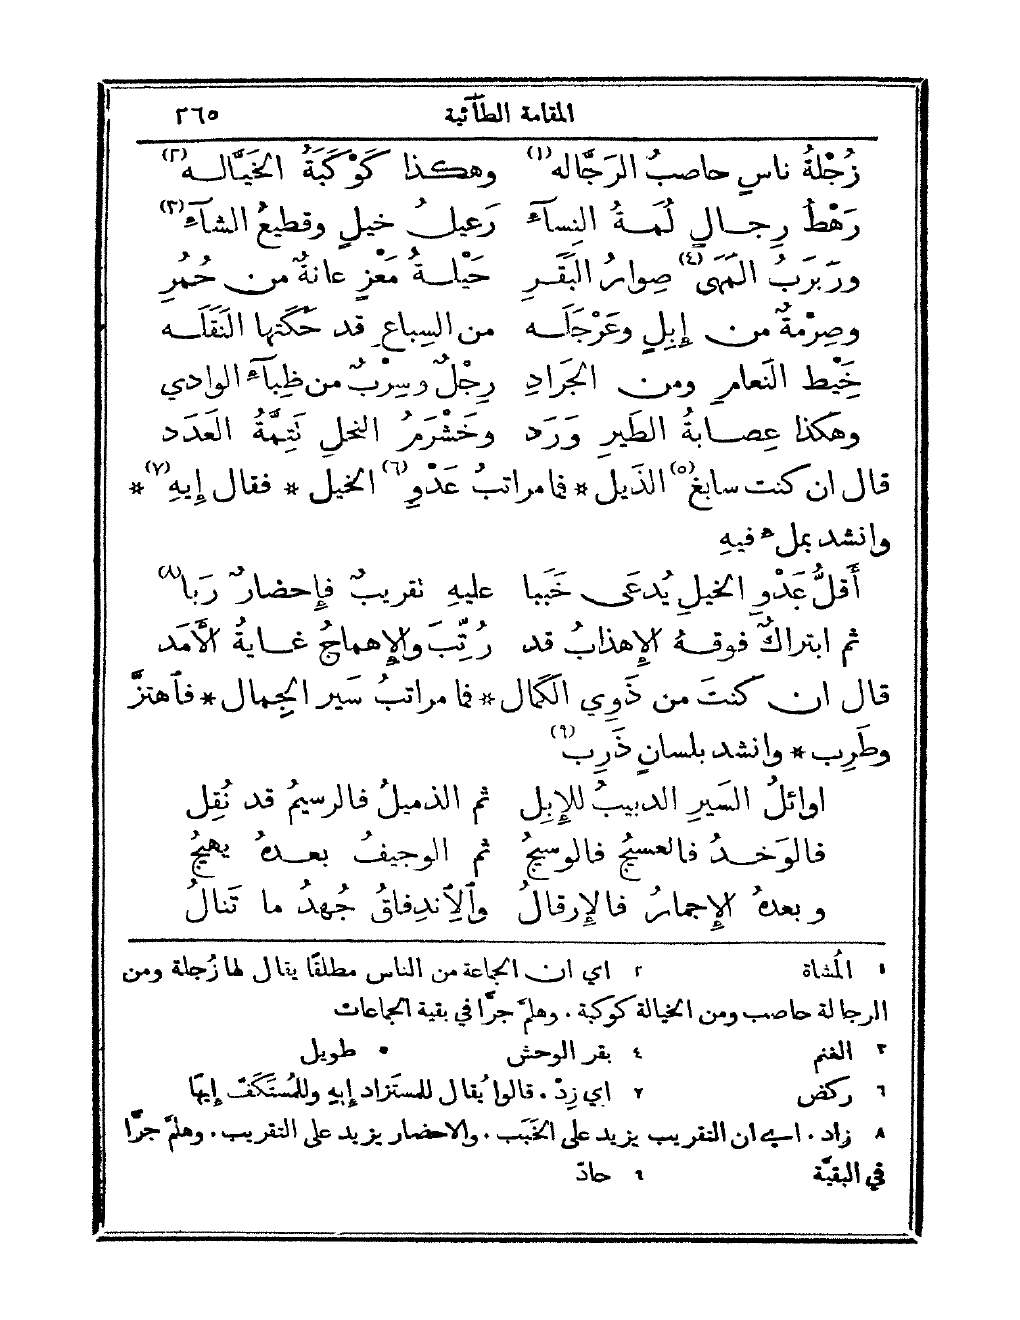 المقامة الطآئية ٢٦٥
زُجْلةُ ناسٍ حاصبُ الرَجَّاله(١) وهكـذا كَوْكَبَةُ الخَيَّالـه(٢)
رَهْطُ رِجـالٍ لُمَـةُ النِسآء رَعيلُ خيلٍ وقطيعُ الشآء(٣)
ورَبرَبُ المَهَى(٤) صِوارُ البَقَـرِ حَيْلـةُ مَعْزٍ عانةٌ من حُمُرِ
وصِرْمةٌ من إِبِلٍ وعَرْجَلَـه من السِباعِ قد حَكَتها النَقَلَـه
خَيْط النَعامِ ومن الجَرادِ رِجْلٌ وسِرْبٌ من ظِبآء الوادي
وهكذا عِصـابةُ الطَيرِ وَرَد وخَشْرَمُ النحلِ تَتِمَّةُ العَدَد
قال ان كنت سابغ(٥) الذَيل * فما مراتبُ عَدْوِ(٦) الخيل * فقال إِيهِ(٧) *
وانشد بملء فيهِ
أَقلُّ عَدْوِ الخيلِ يُدعَى خَببا عليهِ تقريبٌ فإِحضارٌ رَبا(٨)
ثم ابتراكٌ فوقـهُ الإِهذابُ قد رُتِّبَ والإِهماجُ غـايةُ الأَمَد
قال ان كنتَ من ذَوِي الكَمال * فما مراتبُ سَير الجِمال * فاهتزَّ
وطَرِب * وانشد بلسانٍ ذَرِب(٩)
اوائلُ السَيرِ الدبيبُ للإِبِل ثم الذميلُ فالرسيمُ قد نُقِل
فالوَخـدُ فالعسيجُ فالوسيجُ ثم الوجيفُ بعـدهُ يهيجُ
وبعدهُ الإِجمارُ فالإِرقالُ والاِندِفاقُ جُهدُ ما تَنالُ
١ المُشاة ٢ اي ان الجماعة من الناس مطلقًا يقال لها زُجلة ومن
الرجالة حاصب ومن الخيالة كوكبة . وهلمَّ جرًّا في بقية الجماعات
٣ الغنم ٤ بقر الوحش ٥ طويل
٦ ركض ٧ اي زِدْ . قالوا يُقال للمستَزاد إِيهِ وللمُستَكَفّ إِيهًا
٨ زاد . اي ان التقريب يزيد على الخَبَب . والاحضار يزيد على التقريب . وهلمَّ جرًّا
في البقيَّة ٩ حادّ